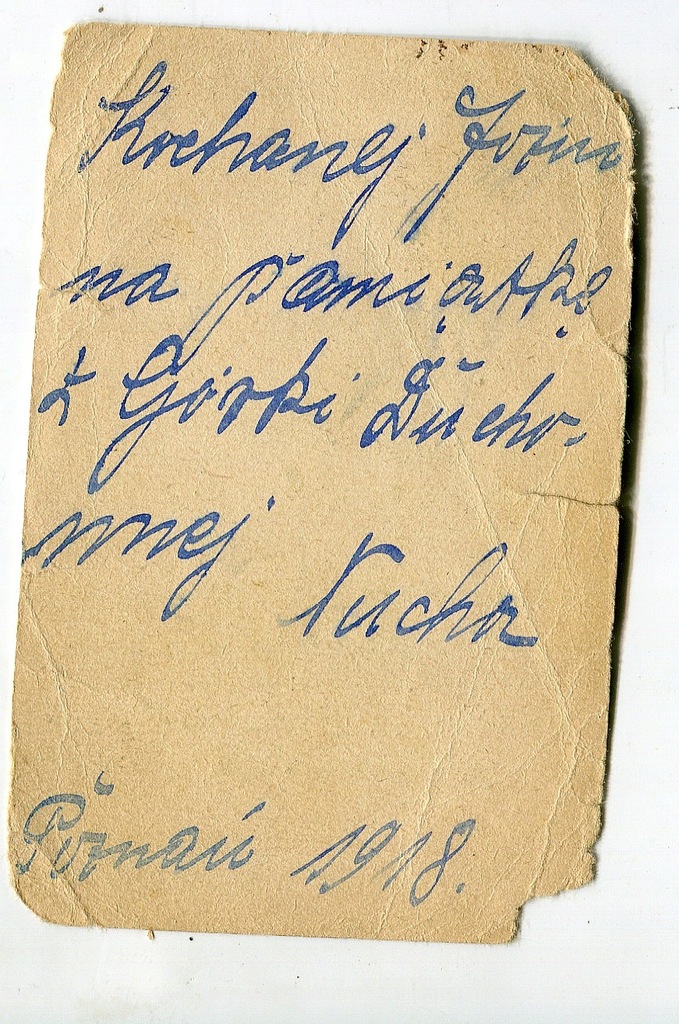 Kochanej Jozin
na pamiątkę
z Górki Ducho-
wnej
Nucha
Poznań 1918.